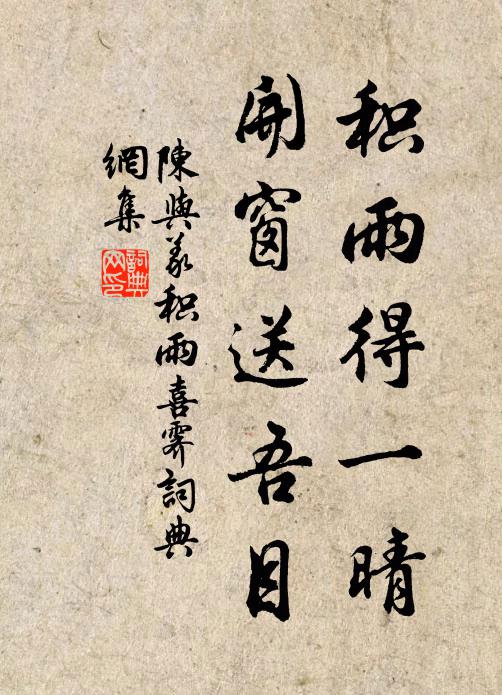 积雨得一晴
開窗送吾目
陳與義积雨喜霁詞典
網集
詞典
网印